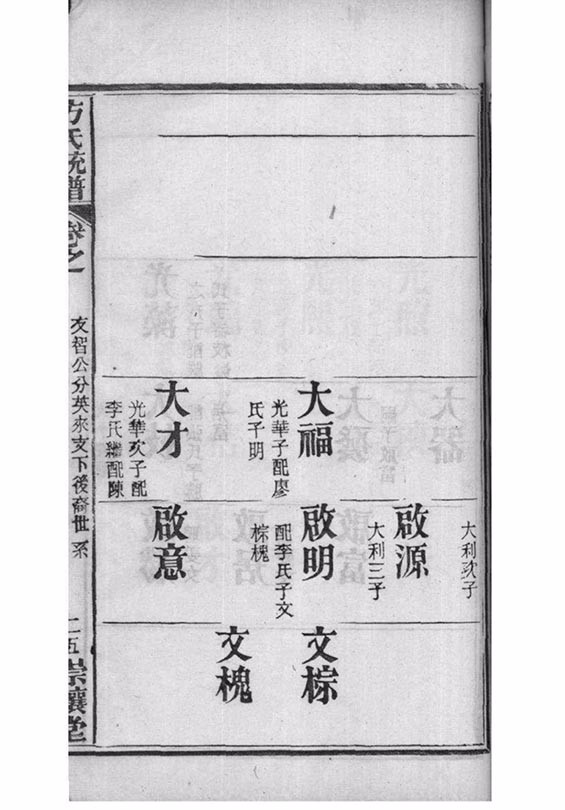 大利次子
啟源
大利三子
大福
光華子配廖
氏子明
啟明
配李氏子文
棕槐
文棕
文槐
大才
光華次子配
李氏繼配陳
啟意
方氏統譜
卷之
友智公分英來支下後裔世系
二五
崇讓堂